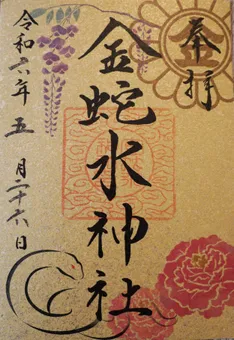 奉拝
金
金蛇水神社
令和六年五月二十六日